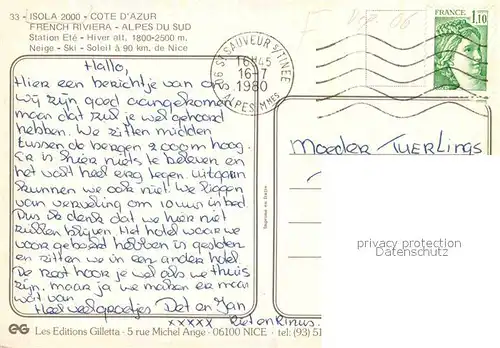 33 - ISOLA 2000 - COTE D'AZUR
FRENCH RIVIERA - ALPES DU SUD
Station Eté - Hiver alt. 1800-2500 m.
Neige - Ski - Soleil à 90 km. de Nice
06 ST. SAUVEUR S/TINEE
16H45
16-7
1980
ALPES MMES
1,10
Hallo,
Hier een berichtje van ons
Wij zijn goed aangekomen
maar dat zul je wel gehoord
hebben. We zitten midden
tussen de bergen 2000m hoog.
Er is hier niets te beleven en
het valt heel erg tegen. Uitgaan
kunnen we ook niet. We liggen
van verveling om 10 uur in bed.
Dus ik denk dat we hier niet
zullen blijven. Het hotel waar we
voor geboekt hebben is gesloten
en zitten we in een ander hotel.
De rest hoor je wel als we thuis
zijn. maar ja we maken er maar
wat van.
Heel veel groetjes Det en Jan
xxxxx Riet en Rinus.
Moeder Tuerlings
privacy protection
Datenschutz
EG Les Editions Gilletta - 5 rue Michel Ange - 06100 NICE - tel: (93) 51